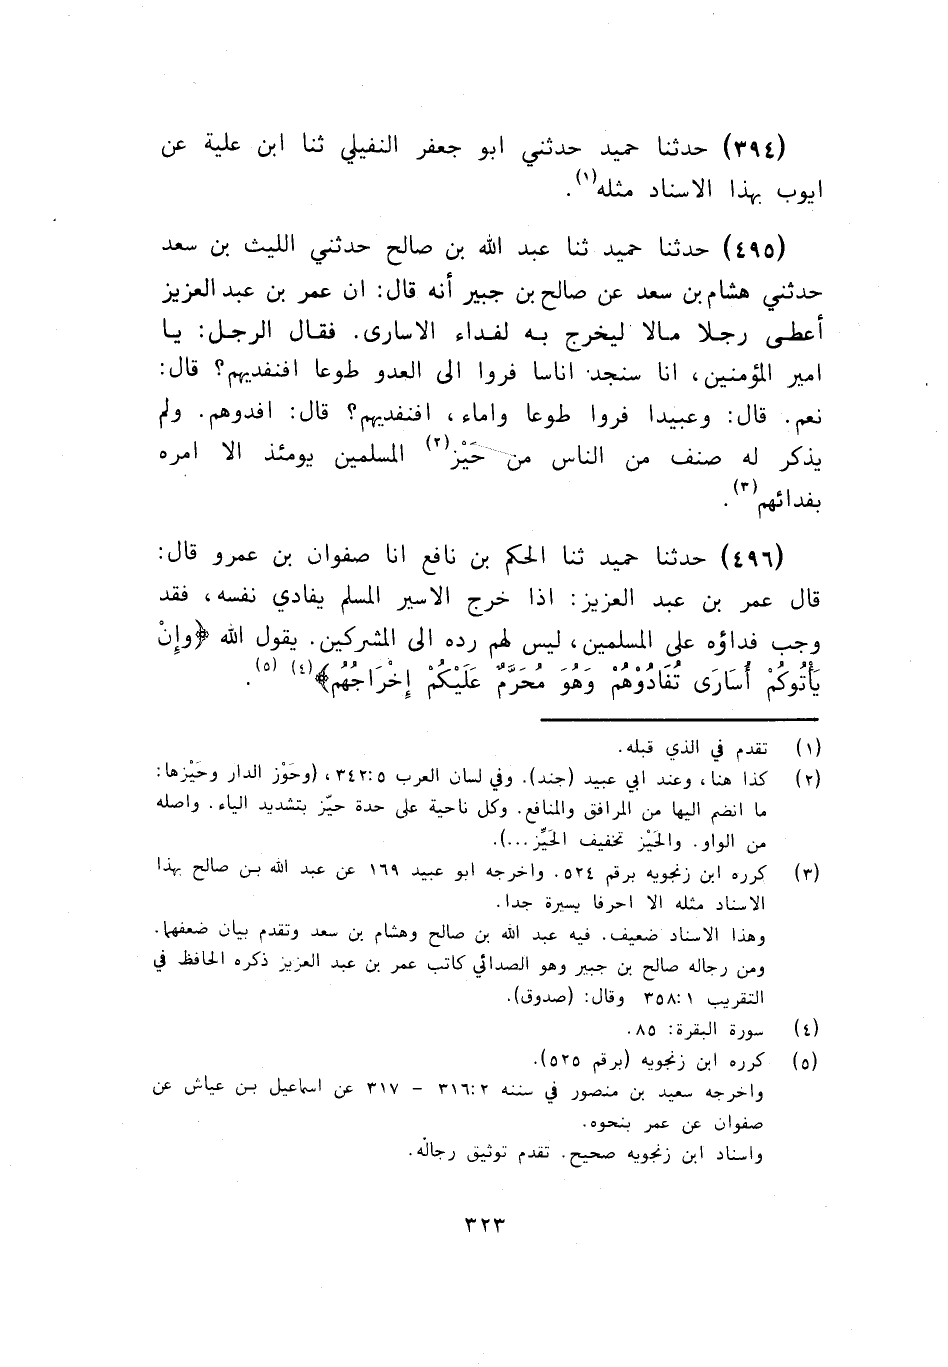 (٣٩٤) حدثنا حميد حدثني ابو جعفر النفيلي ثنا ابن علية عن
ايوب بهذا الاسناد مثله(١).
(٤٩٥) حدثنا حميد ثنا عبد الله بن صالح حدثني الليث بن سعد
حدثني هشام بن سعد عن صالح بن جبير أنه قال: ان عمر بن عبد العزيز
أعطى رجلا مالا ليخرج به لفداء الاسارى. فقال الرجل: يا
امير المؤمنين، انا سنجد اناسا فروا الى العدو طوعا افنفديهم؟ قال:
نعم. قال: وعبيدا فروا طوعا واماء، افنفديهم؟ قال: افدوهم. ولم
يذكر له صنف من الناس من حَيْز(٢) المسلمين يومئذ الا امره
بفدائهم(٣).
(٤٩٦) حدثنا حميد ثنا الحكم بن نافع انا صفوان بن عمرو قال:
قال عمر بن عبد العزيز: اذا خرج الاسير المسلم يفادي نفسه، فقد
وجب فداؤه على المسلمين، ليس لهم رده الى المشركين. يقول الله ﴿وإنْ
يَأْتُوكُمْ أُسَارَى تُفَادُوْهُمْ وَهُوَ مُحَرَّمٌ عَلَيْكُمْ إخْرَاجُهُمْ﴾(٤) (٥).
(١) تقدم في الذي قبله.
(٢) كذا هنا، وعند ابي عبيد (جند). وفي لسان العرب ٥:٣٤٢، (وحَوْز الدار وحَيْزها:
ما انضم اليها من المرافق والمنافع. وكل ناحية على حدة حيّز بتشديد الياء. واصله
من الواو. والحَيْز تخفيف الحَيِّز...).
(٣) كرره ابن زنجويه برقم ٥٢٤. واخرجه ابو عبيد ١٦٩ عن عبد الله بن صالح بهذا
الاسناد مثله الا احرفا يسيرة جدا.
وهذا الاسناد ضعيف. فيه عبد الله بن صالح وهشام بن سعد وتقدم بيان ضعفهما.
ومن رجاله صالح بن جبير وهو الصدائي كاتب عمر بن عبد العزيز ذكره الحافظ في
التقريب ١:٣٥٨ وقال: (صدوق).
(٤) سورة البقرة: ٨٥.
(٥) كرره ابن زنجويه (برقم ٥٢٥).
واخرجه سعيد بن منصور في سننه ٢:٣١٦ - ٣١٧ عن اسماعيل بن عياش عن
صفوان عن عمر بنحوه.
واسناد ابن زنجويه صحيح. تقدم توثيق رجاله.
٣٢٣